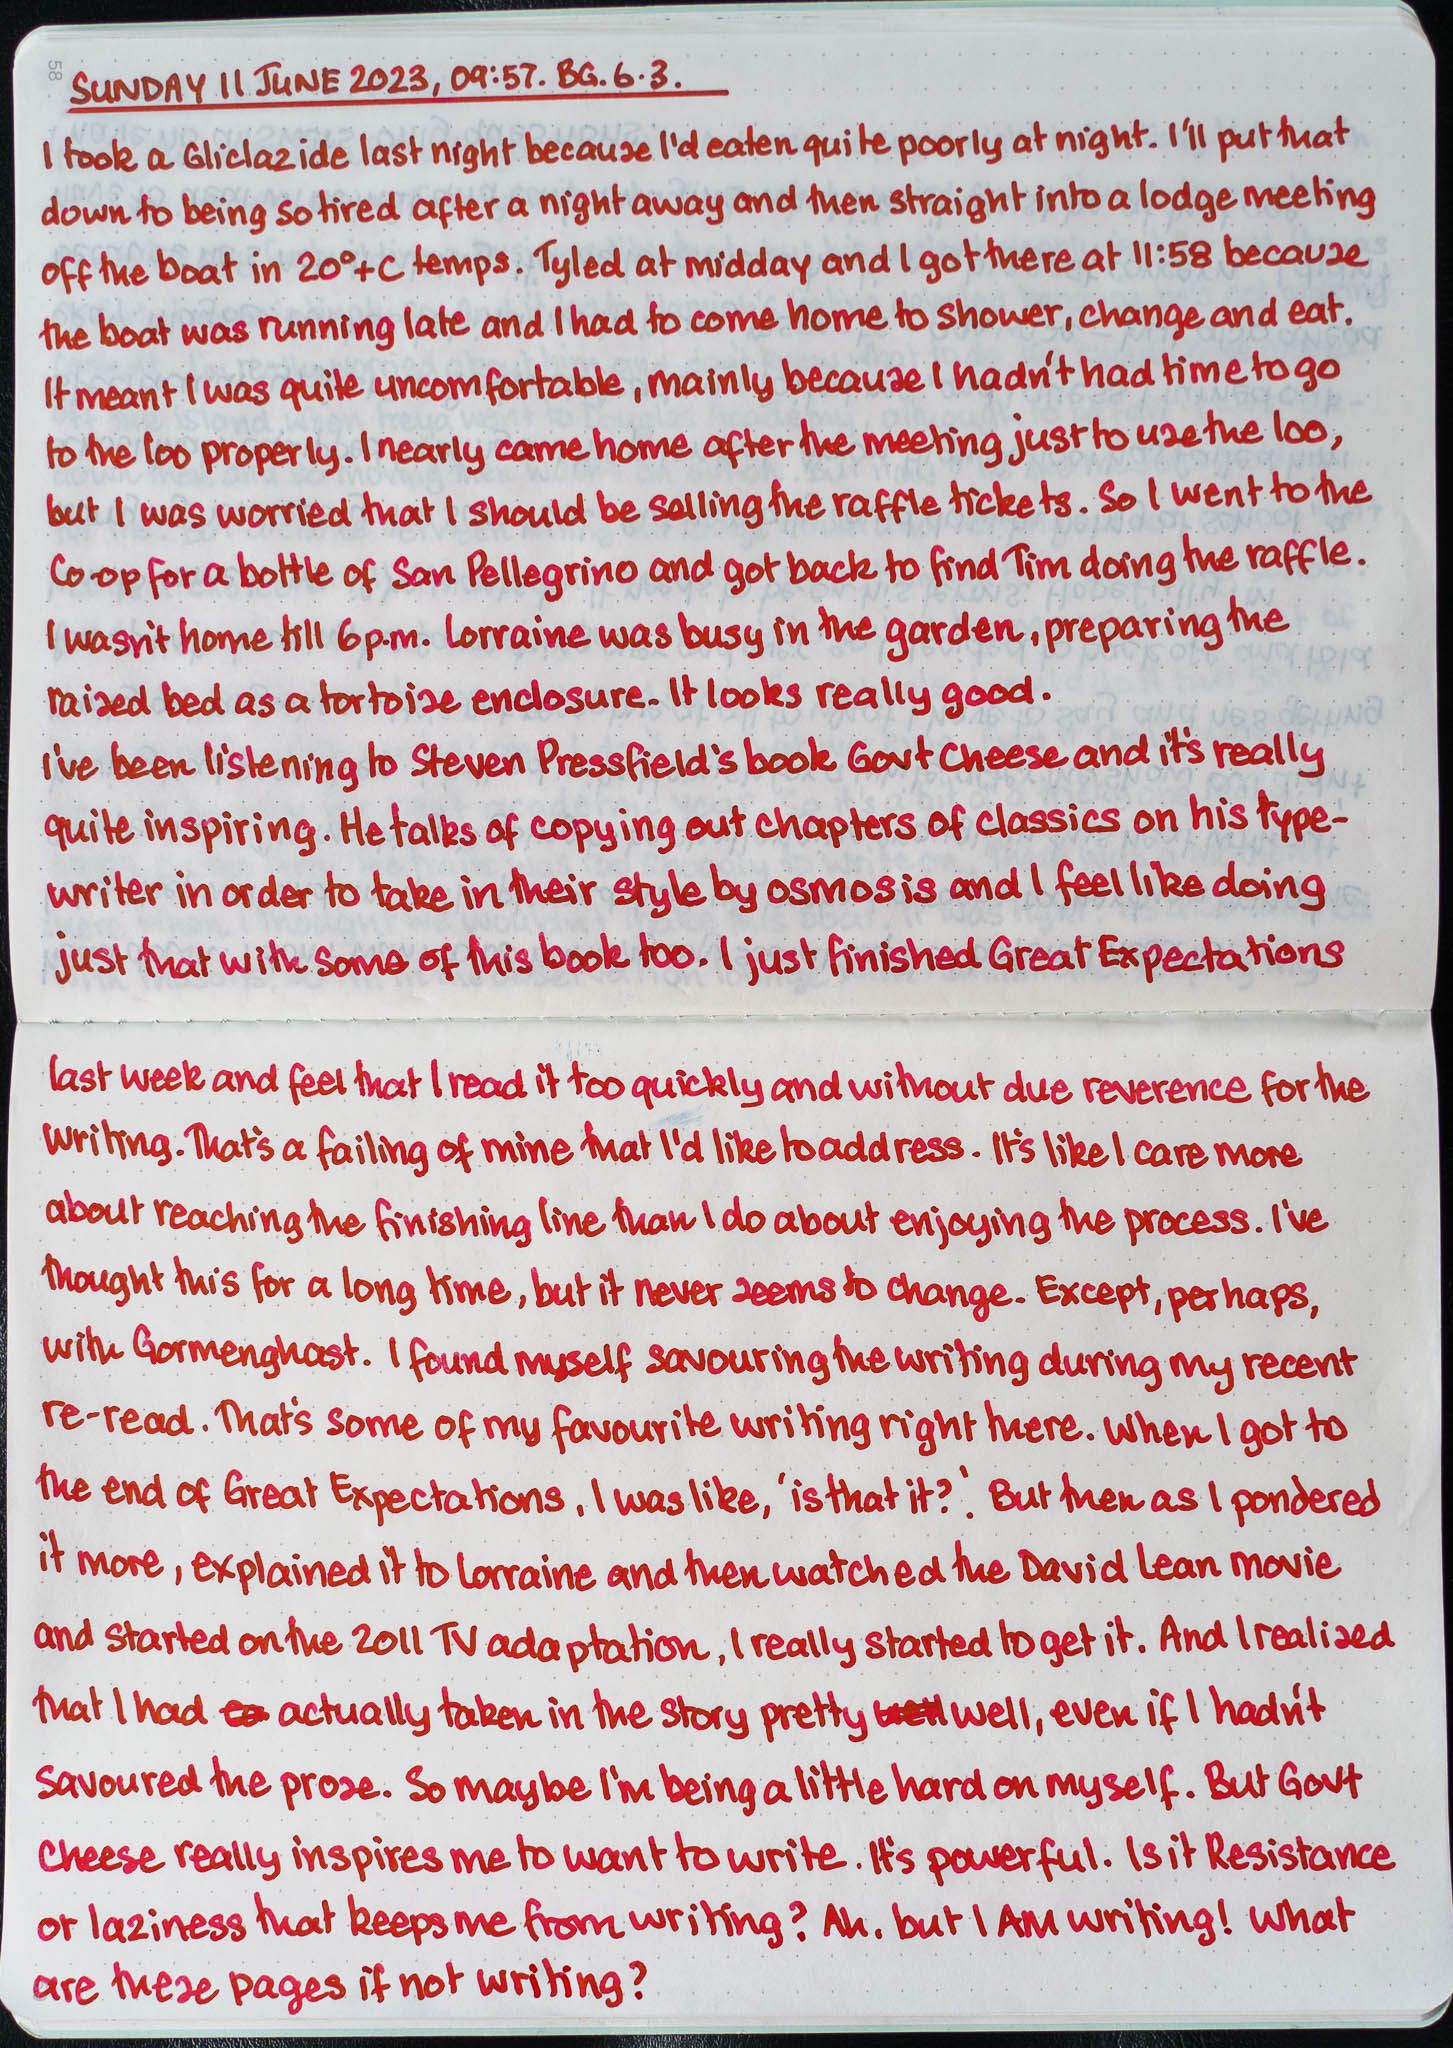 58
SUNDAY 11 JUNE 2023, 09:57. BG. 6.3.
I took a Gliclazide last night because I'd eaten quite poorly at night. I'll put that
down to being so tired after a night away and then straight into a lodge meeting
off the boat in 20°+C temps. Tyled at midday and I got there at 11:58 because
the boat was running late and I had to come home to shower, change and eat.
It meant I was quite uncomfortable, mainly because I hadn't had time to go
to the loo properly. I nearly came home after the meeting just to use the loo,
but I was worried that I should be selling the raffle tickets. So I went to the
Co-op for a bottle of San Pellegrino and got back to find Tim doing the raffle.
I wasn't home till 6p.m. Lorraine was busy in the garden, preparing the
raised bed as a tortoise enclosure. It looks really good.
I've been listening to Steven Pressfield's book Govt Cheese and it's really
quite inspiring. He talks of copying out chapters of classics on his type-
writer in order to take in their style by osmosis and I feel like doing
just that with some of this book too. I just finished Great Expectations
last week and feel that I read it too quickly and without due reverence for the
writing. That's a failing of mine that I'd like to address. It's like I care more
about reaching the finishing line than I do about enjoying the process. I've
thought this for a long time, but it never seems to change. Except, perhaps,
with Gormenghast. I found myself savouring the writing during my recent
re-read. That's some of my favourite writing right there. When I got to
the end of Great Expectations, I was like, 'is that it?'. But then as I pondered
it more, explained it to Lorraine and then watched the David Lean movie
and started on the 2011 TV adaptation, I really started to get it. And I realised
that I had actually taken in the story pretty well, even if I hadn't
savoured the prose. So maybe I'm being a little hard on myself. But Govt
Cheese really inspires me to want to write. It's powerful. Is it Resistance
or laziness that keeps me from writing? Ah, but I AM writing! What
are these pages if not writing?